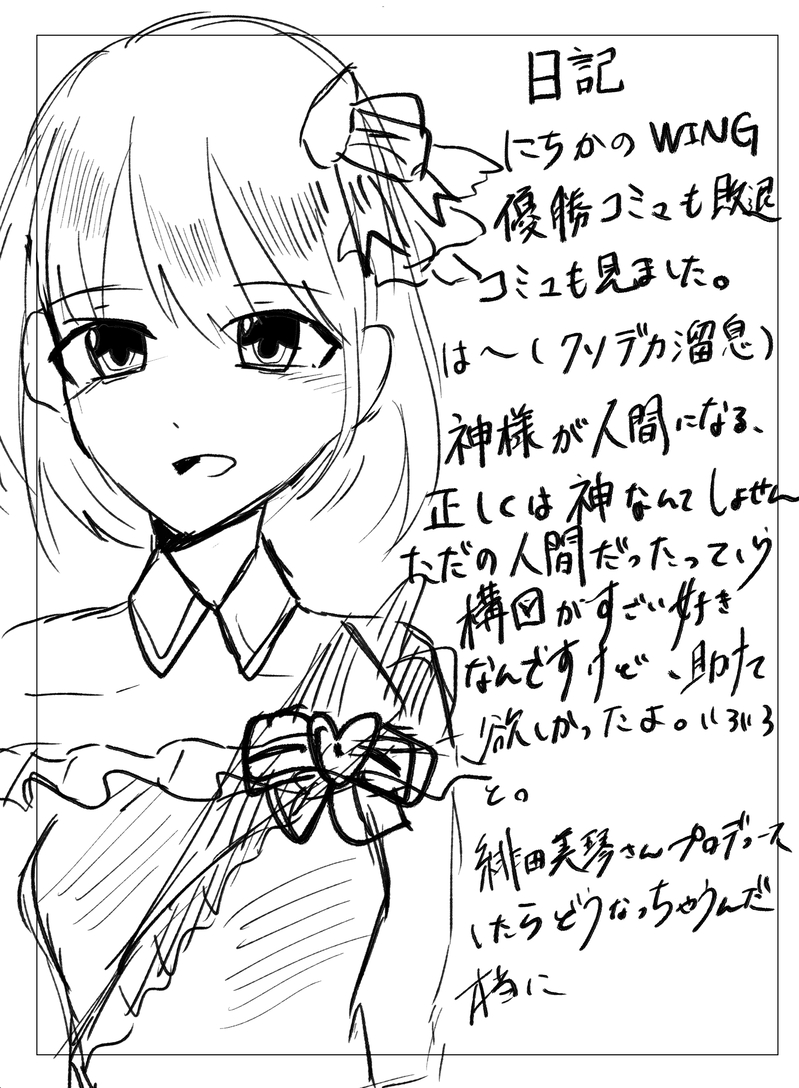 日記
にちかの WING
優勝コミュも敗退
コミュも見ました。
は～(クソデカ溜息)
神様が人間になる、
正しくは神なんてしょせん
ただの人間だったっていう
構図がすごい好き
なんですけど、助けて
欲しかったよ。いろいろ
と。
緋田美琴さんプロデュース
したらどうなっちゃうんだ
本当に